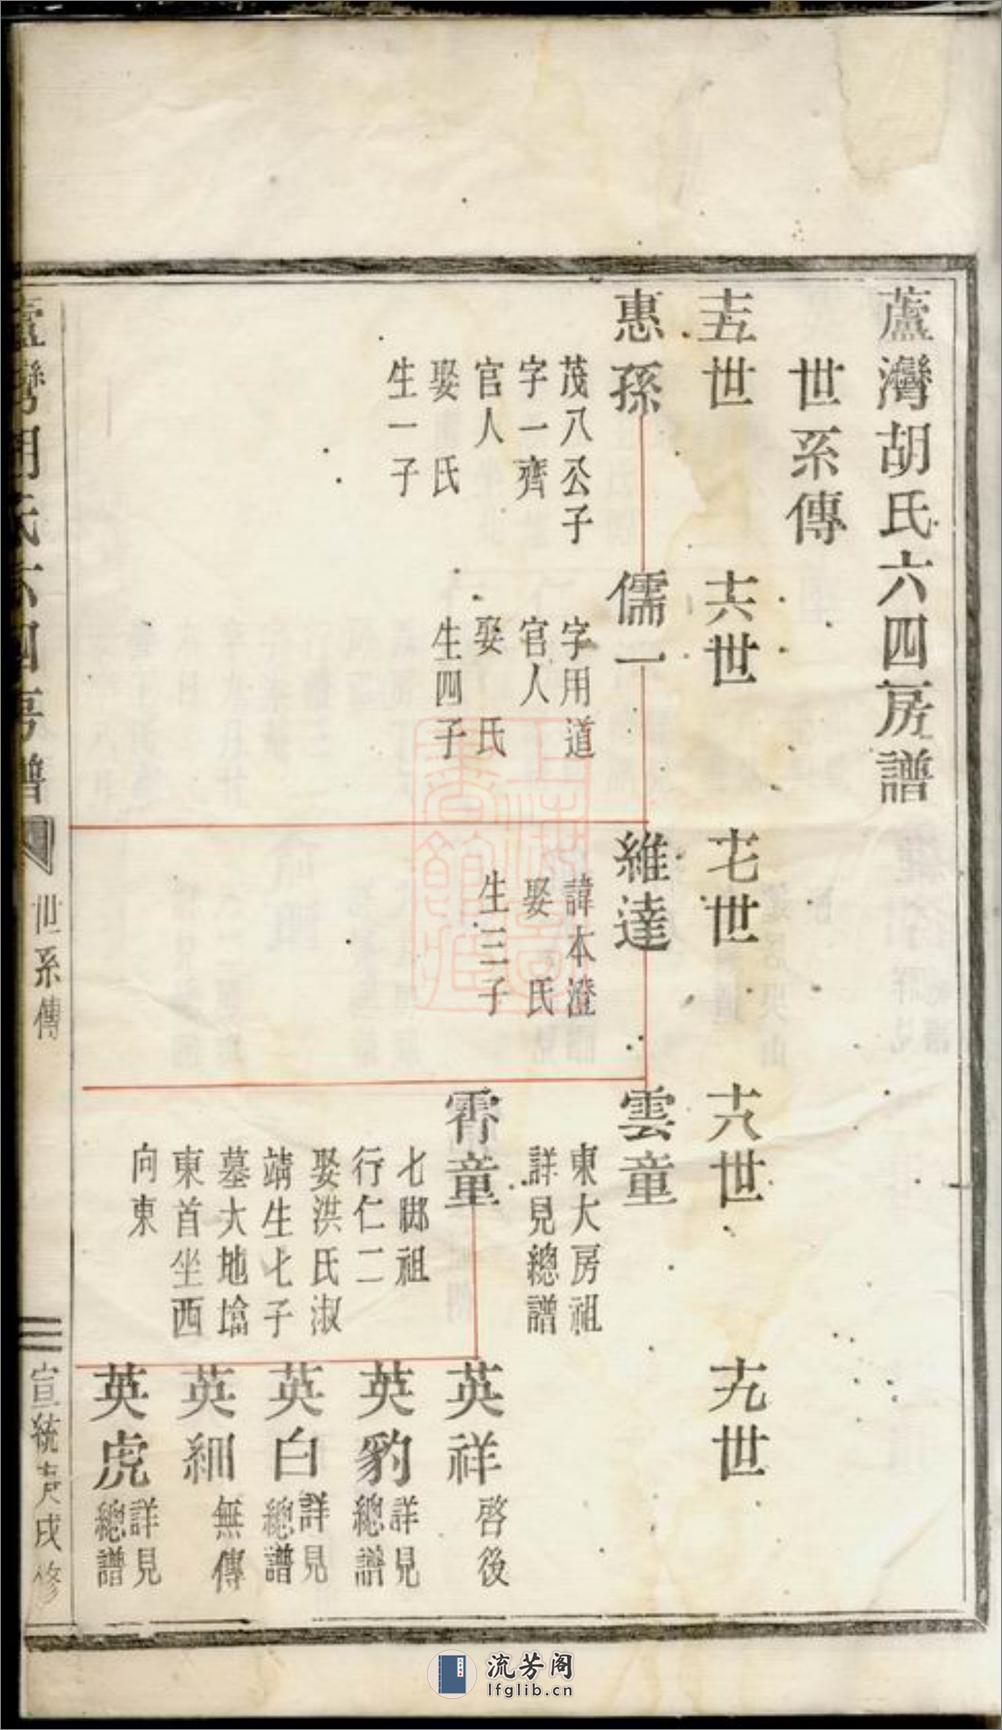 蘆灣胡氏六四房譜
世系傳
十五世
惠孫
茂八公子
字一齊
官人
娶　氏
生一子
十六世
儒一
字用道
官人
娶　氏
生四子
十七世
維達
諱本澄
娶　氏
生三子
十八世
雲童
東大房祖
詳見總譜
霄童
七腳祖
行仁二
娶洪氏淑
靖生七子
墓大地墖
東首坐西
向東
十九世
英祥
啓後
英豹
詳見
總譜
英白
詳見
總譜
英細
無傳
英虎
詳見
總譜
蘆灣胡氏六四房譜
世系傳
宣統庚戌修
上海圖書館藏
流芳阁
lfglib.cn